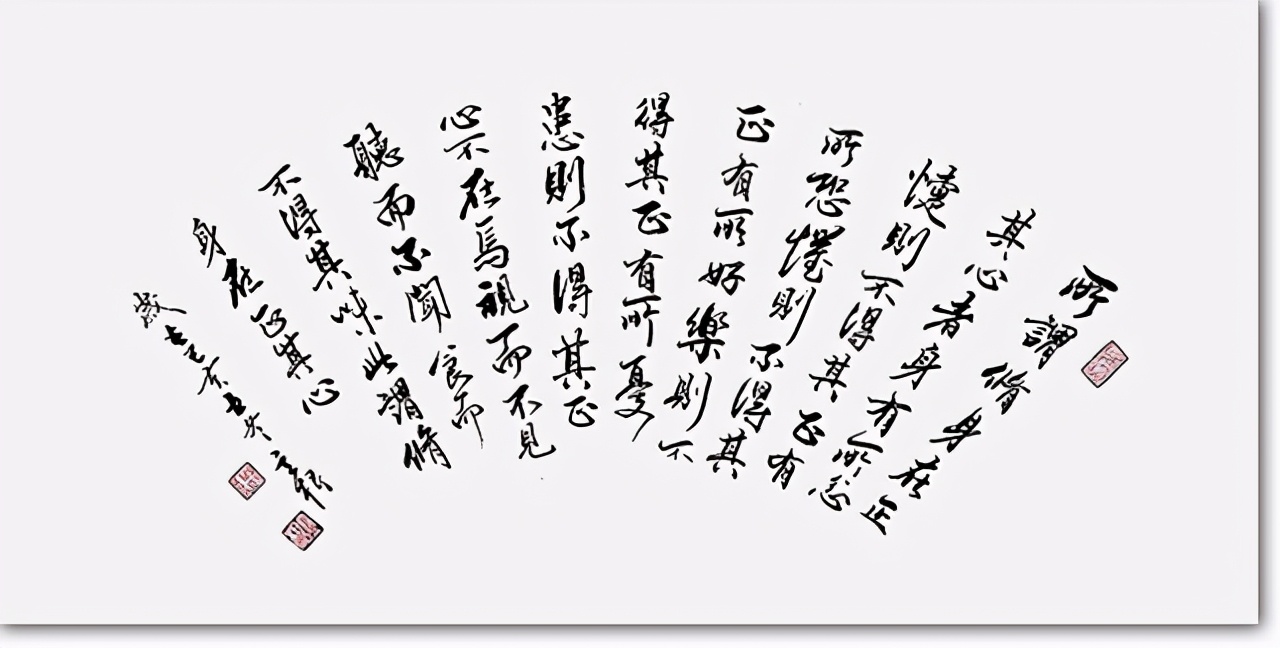 所謂脩身在正
其心者身有所忿
懥則不得其正有
所恐懼則不得其
正有所好樂則不
得其正有所憂
患則不得其正
心不在焉視而不見
聽而不聞食而
不得其味此謂脩
身在正其心
歲在己亥